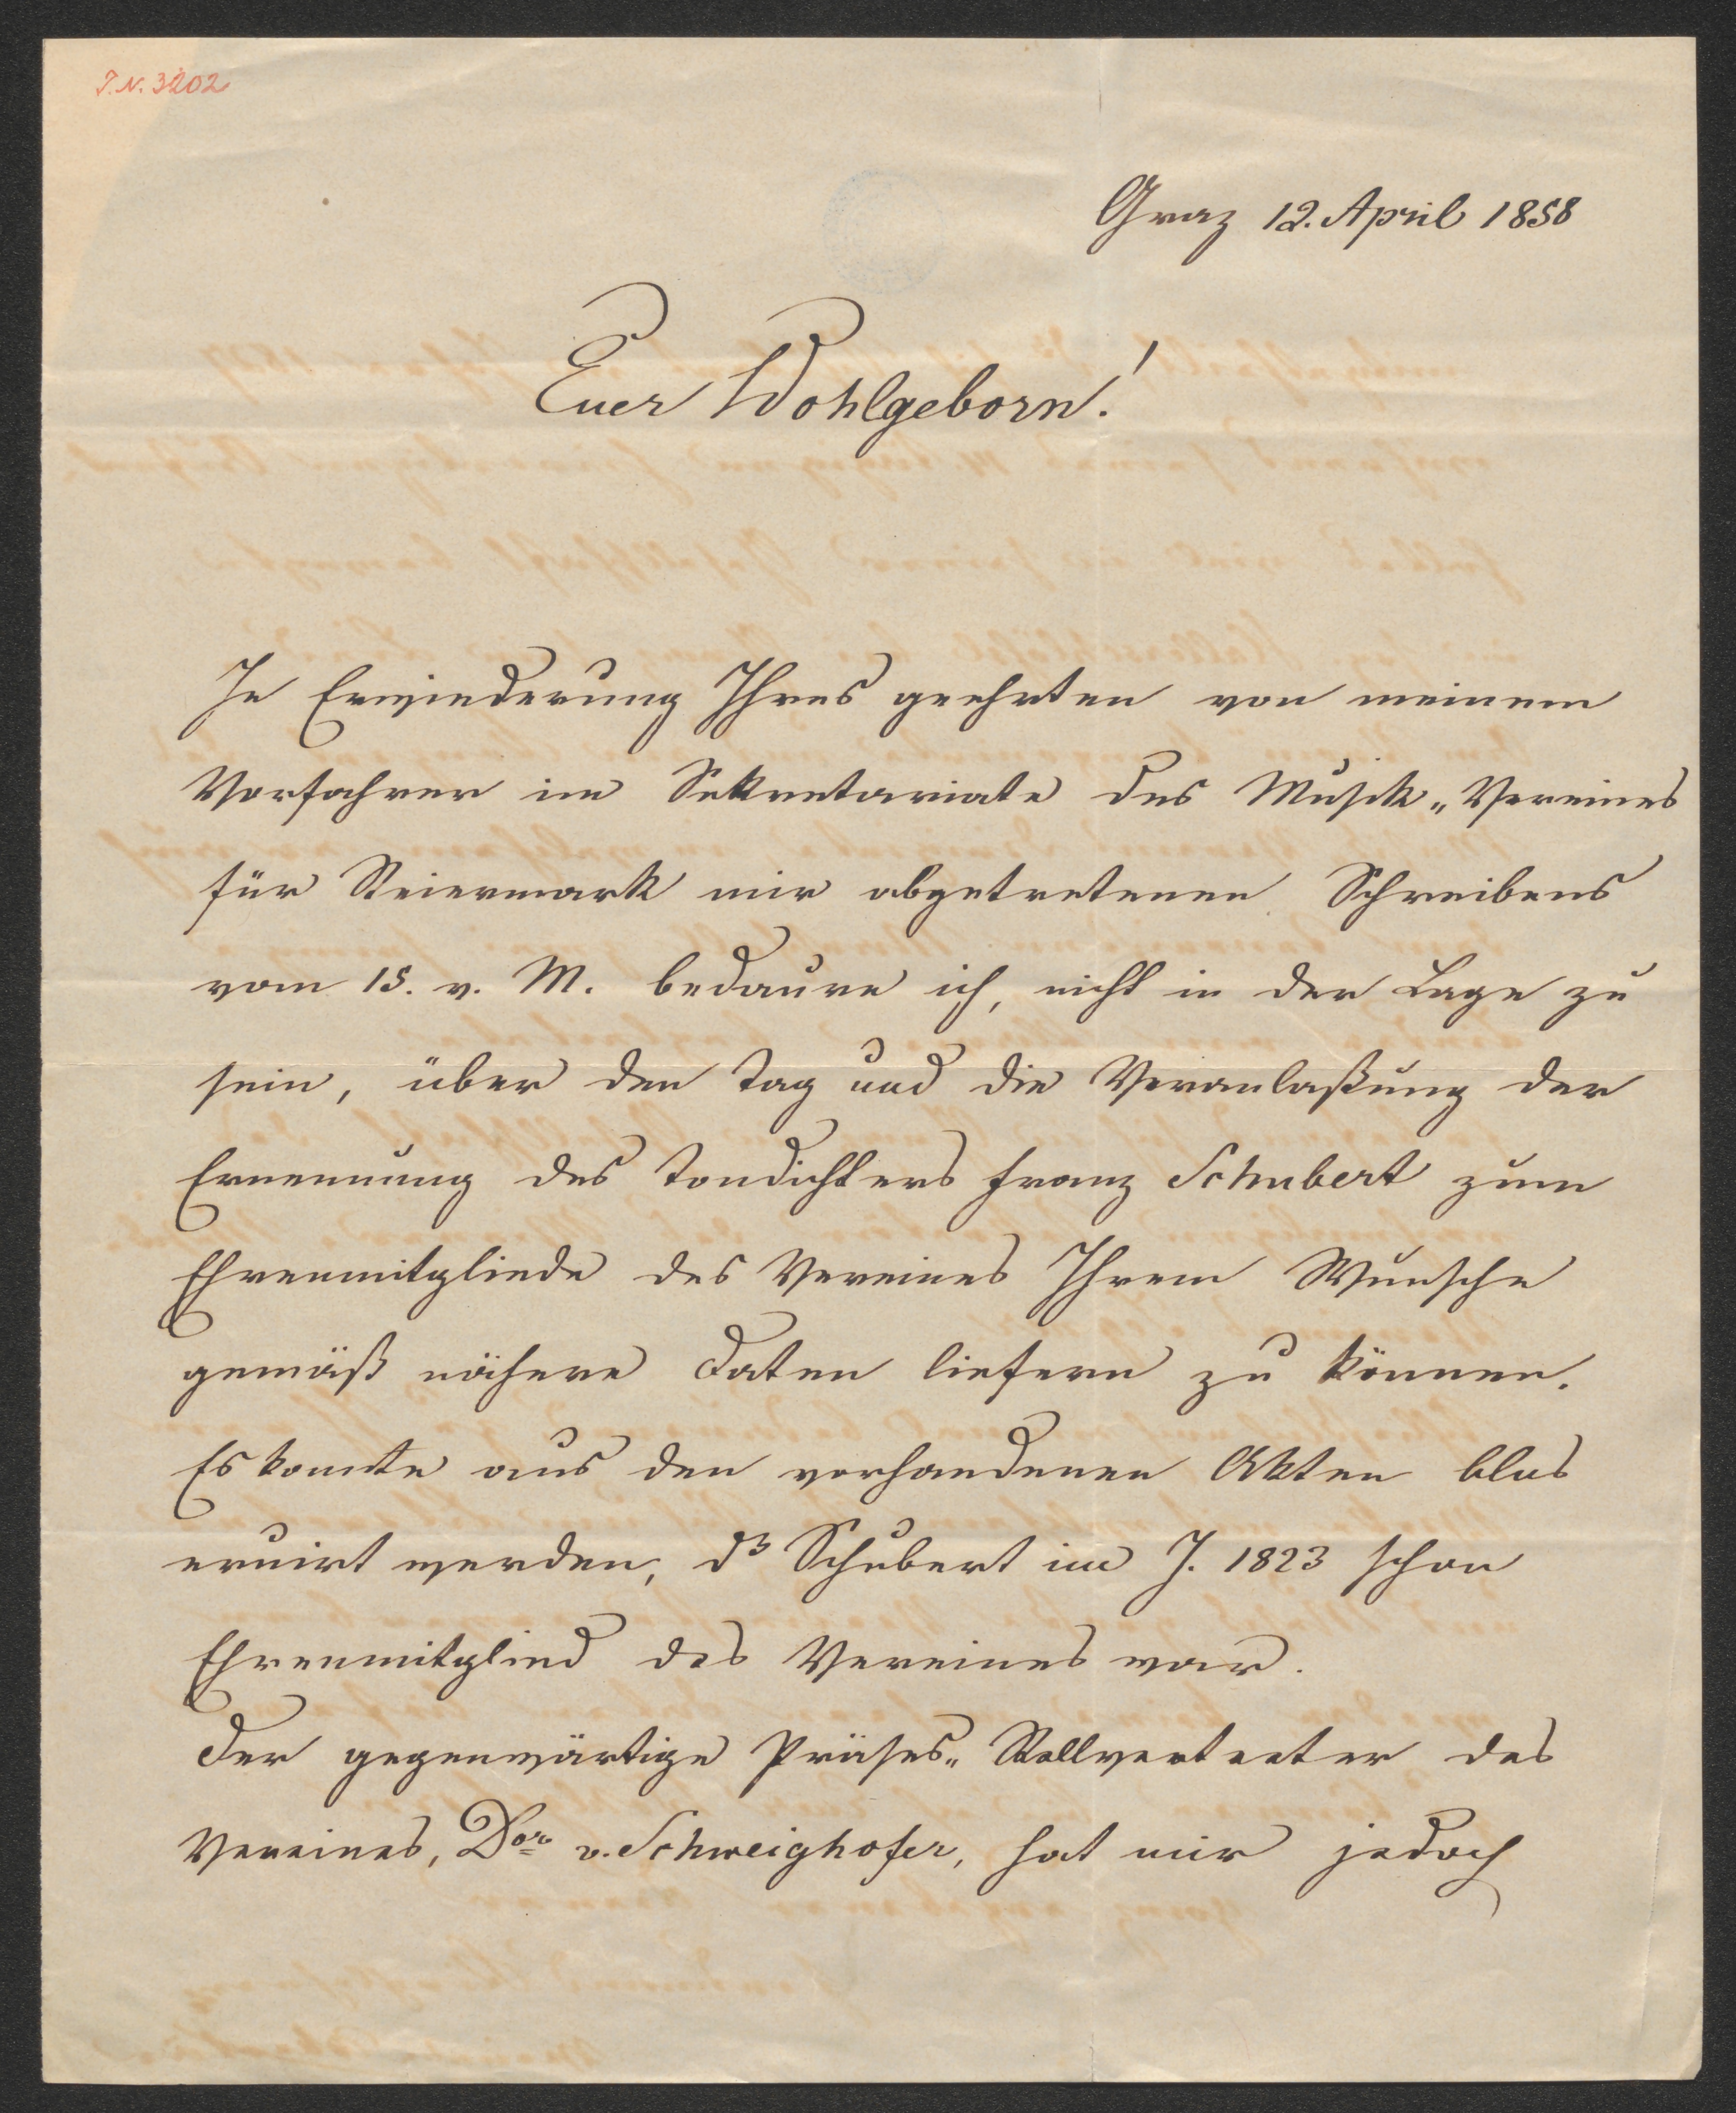 I.N. 3202
Graz 12. April 1858
Euer Wohlgeborn!
In Erwiederung Ihres geehrten von meinem
Vorfahrer im Sekretariate des Musik„Vereines
für Steiermark mir abgetretenen Schreibens
vom 15. v. M. bedaure ich, nicht in der Lage zu
sein, über den Tag und die Veranlaßung der
Ernennung des Tondichters Franz Schubert zum
Ehrenmitgliede des Vereines Ihrem Wunsche
gemäß nähere Daten liefern zu können.
Es konnte aus den vorhandenen Akten blos
eruirt werden, dß Schubert im J. 1823 schon
Ehrenmitglied des Vereines war.
Der gegenwärtige Präses„Stellvertreter des
Vereines, Dor v. Schweighofer, hat mir jedoch